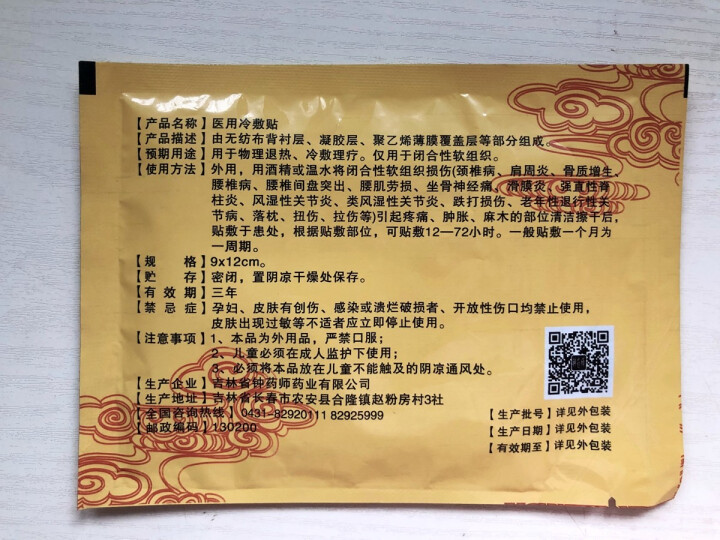 【产品名称】医用冷敷贴
【产品描述】由无纺布背衬层、凝胶层、聚乙烯薄膜覆盖层等部分组成。
【预期用途】用于物理退热、冷敷理疗。仅用于闭合性软组织。
【使用方法】外用，用酒精或温水将闭合性软组织损伤(颈椎病、肩周炎、骨质增生、
腰椎病、腰椎间盘突出、腰肌劳损、坐骨神经痛、滑膜炎、强直性脊
柱炎、风湿性关节炎、类风湿性关节炎、跌打损伤、老年性退行性关
节病、落枕、扭伤、拉伤等)引起疼痛、肿胀、麻木的部位清洁擦干后，
贴敷于患处，根据贴敷部位，可贴敷12—72小时。一般贴敷一个月为
一周期。
【规 格】9x12cm。
【贮 存】密闭，置阴凉干燥处保存。
【有 效 期】三年
【禁 忌 症】孕妇、皮肤有创伤、感染或溃烂破损者、开放性伤口均禁止使用，
皮肤出现过敏等不适者应立即停止使用。
【注意事项】1、本品为外用品，严禁口服；
2、儿童必须在成人监护下使用；
3、必须将本品放在儿童不能触及的阴凉通风处。
【生产企业】吉林省钟药师药业有限公司
【生产地址】吉林省长春市农安县合隆镇赵粉房村3社
【全国咨询热线】0431-82920111 82925999
【邮政编码】130200
【生产批号】详见外包装
【生产日期】详见外包装
【有效期至】详见外包装